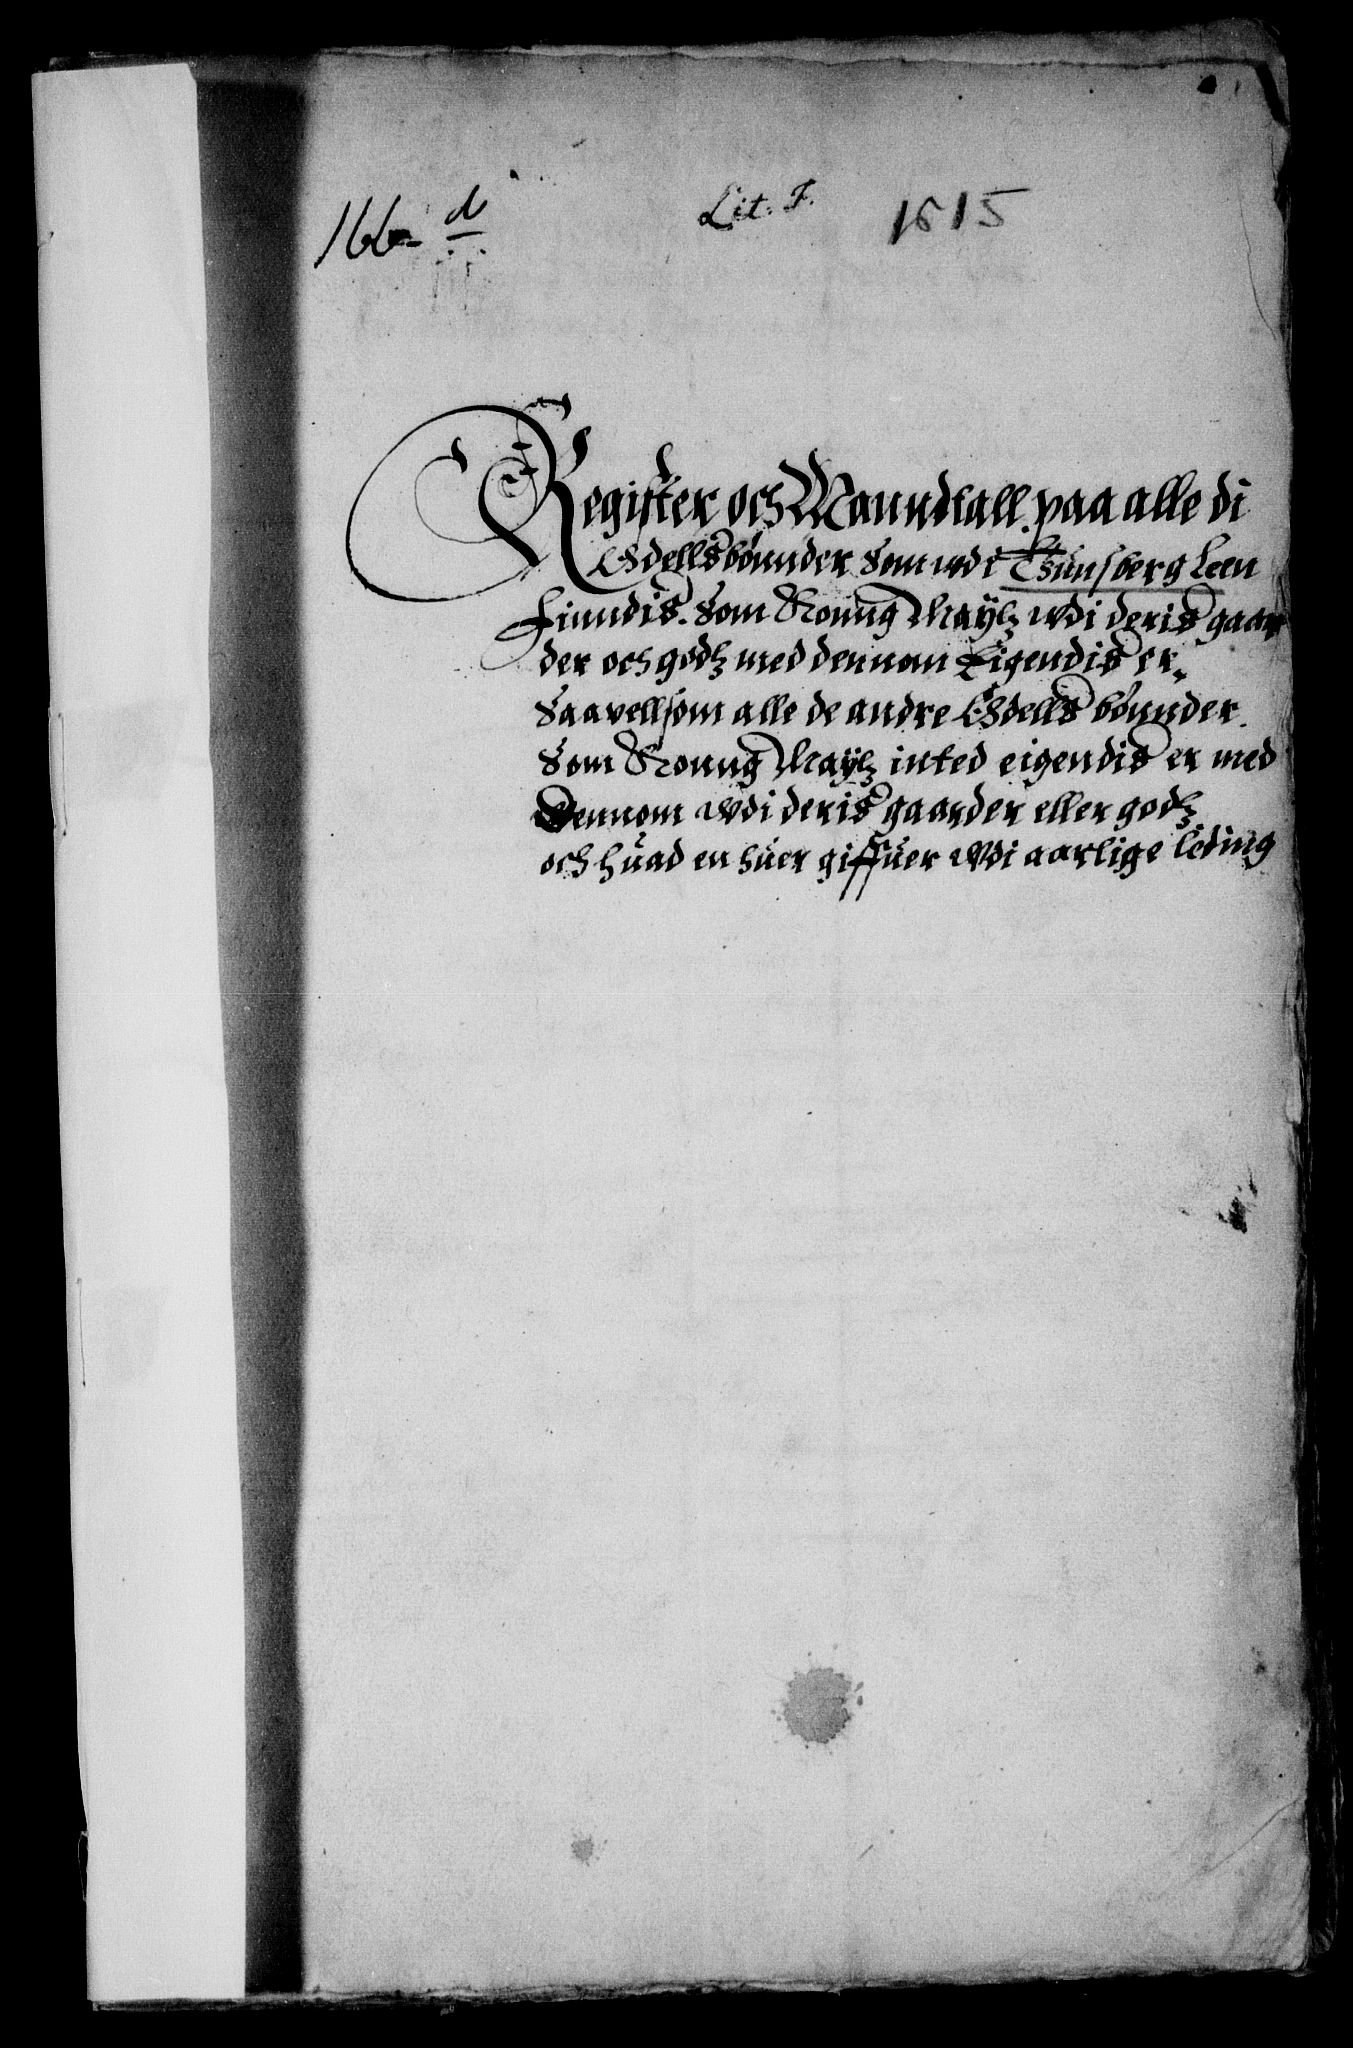 166 d
Lit. F. 1615
Register och Manndtall paa alle di
Odellsbønnder Som wdi Tünsberg Leen
Finndis. Som Konng Maÿtz wdi deris gaar
der och godtz med dennom Eigendis er.
Saavellsom alle de andre Odells bønnder
Som Konng Maÿtz inted eigendis er med
Dennom wdi deris gaarder eller godtz
och hüad en hüer giffüer wdi aarlige leding